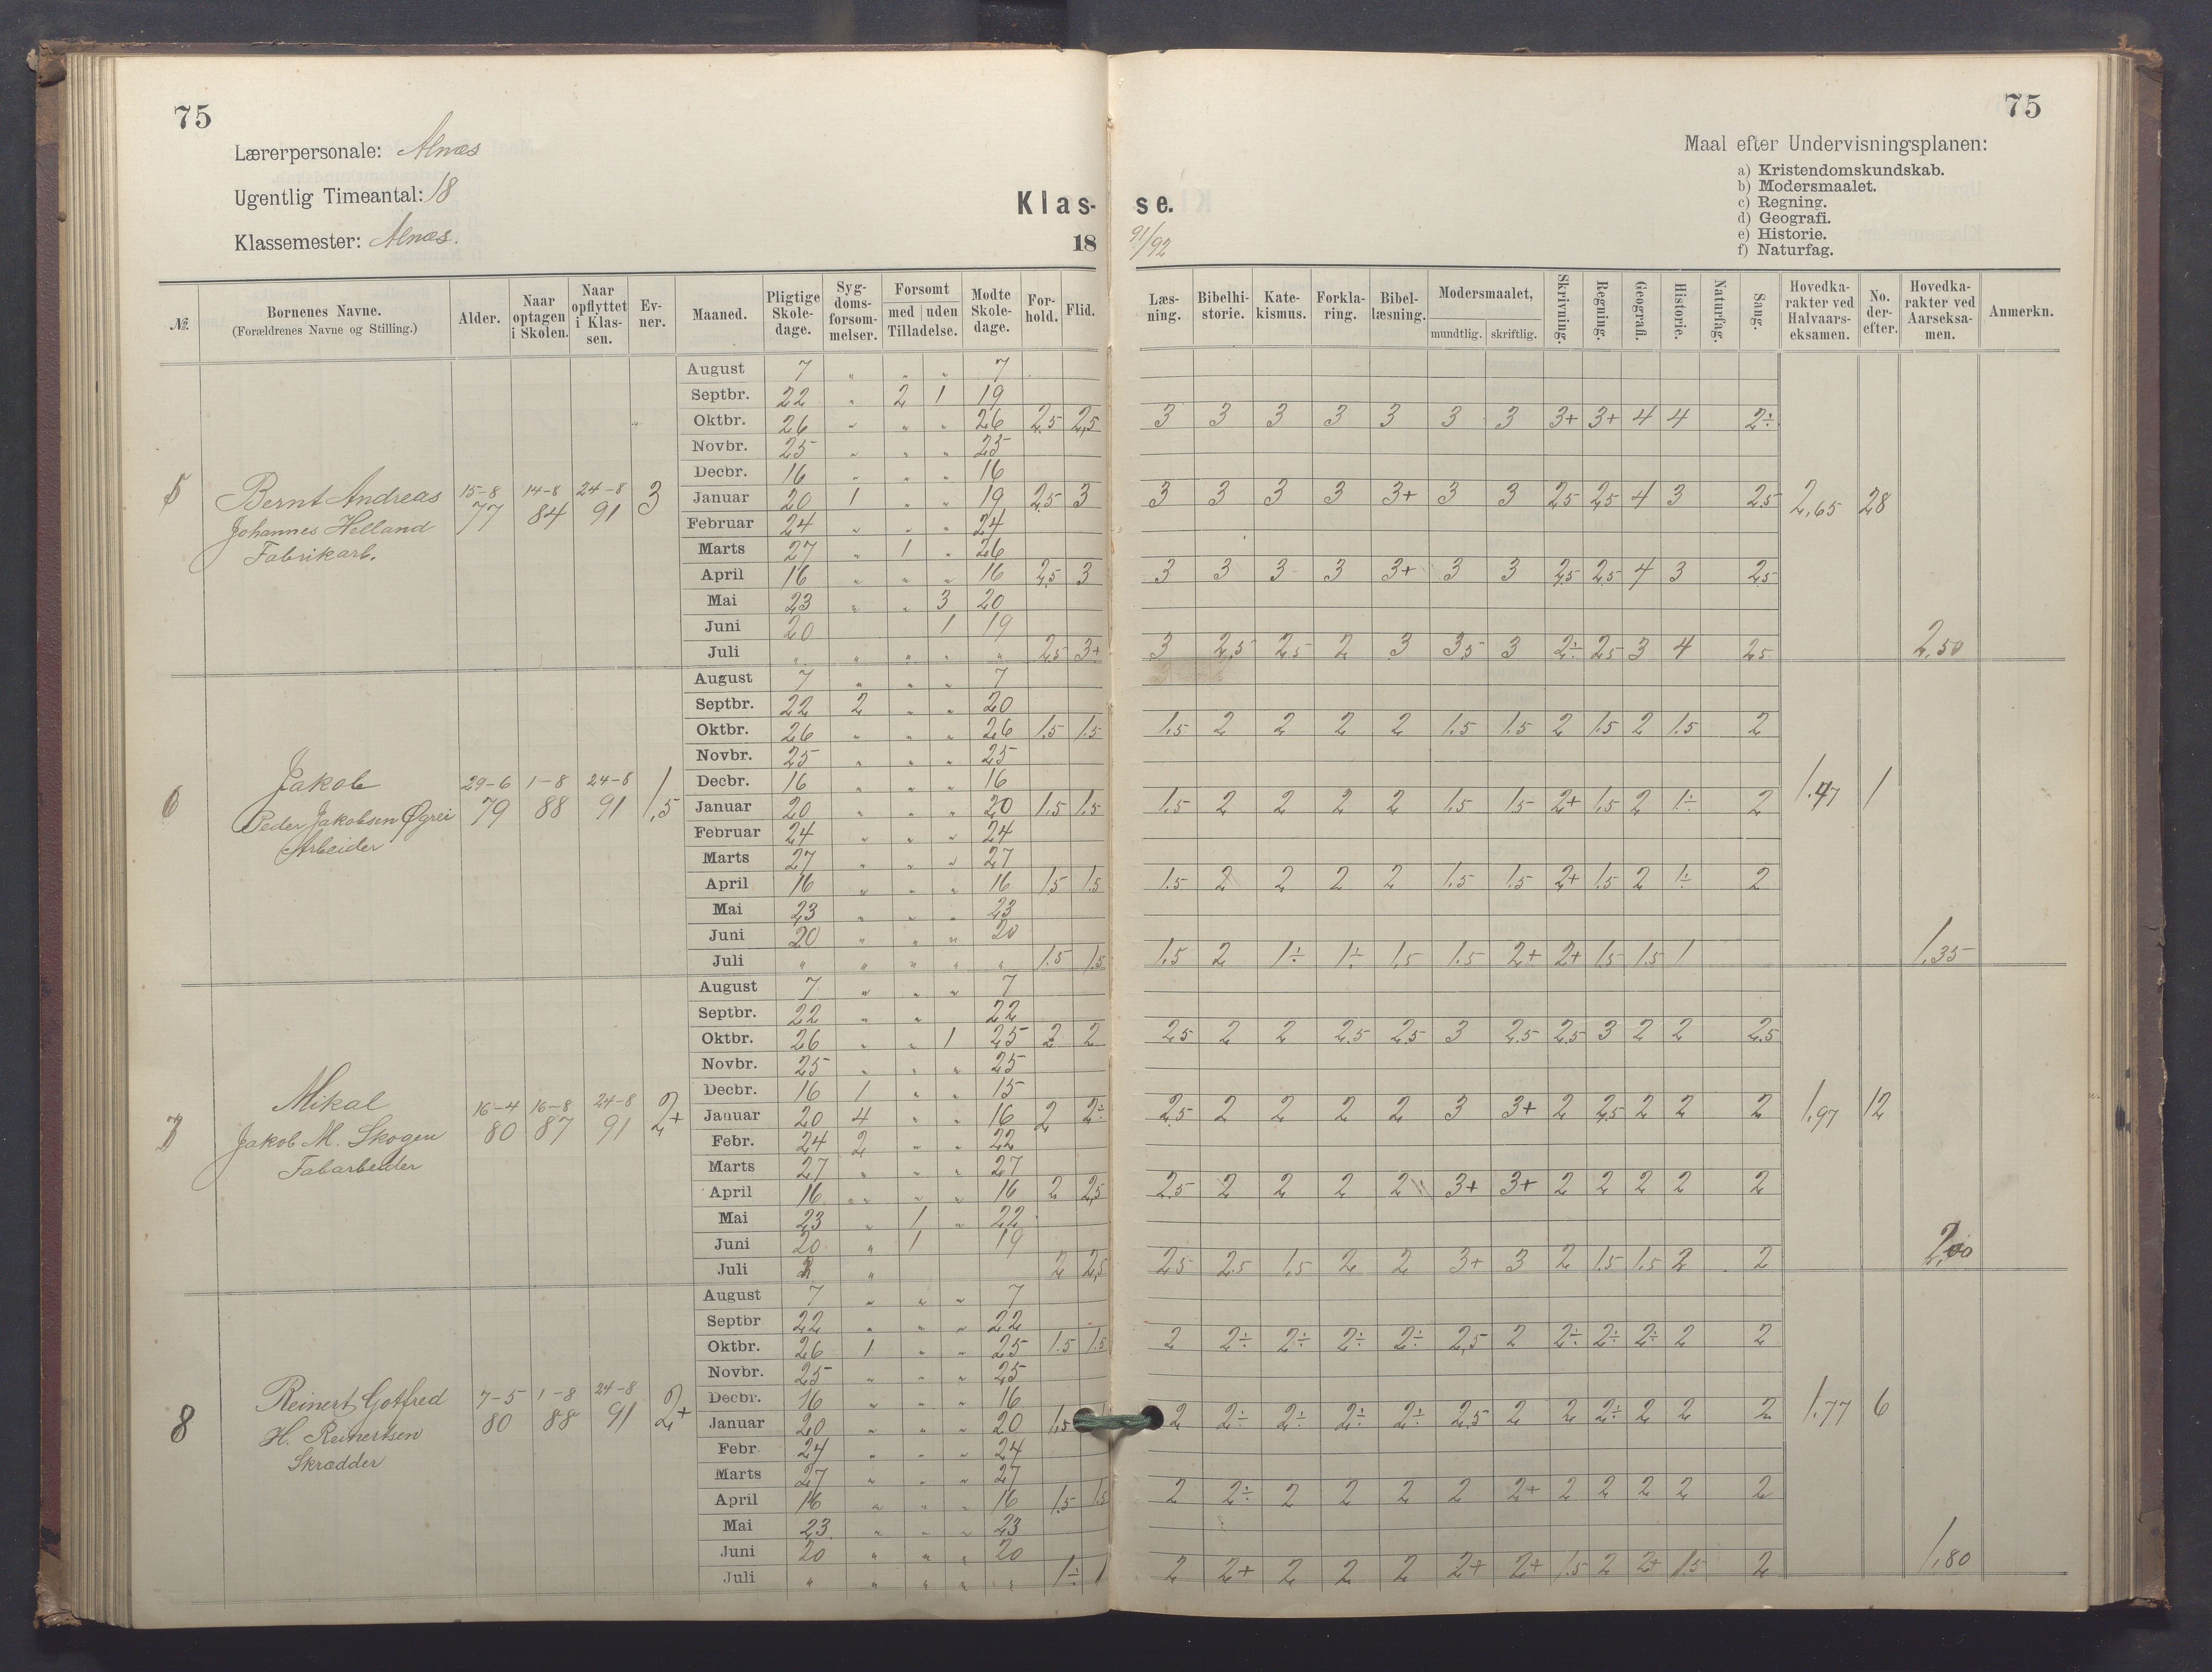 75
75
Lærerpersonale: Alnæs
Ugentlig Timeantal: 18
Klassemester: Alnæs.
Klas- se.
18 91/92
Maal efter Undervisningsplanen:
a) Kristendomskundskab.
b) Modersmaalet.
c) Regning.
d) Geografi.
e) Historie.
f) Naturfag.
№ | Børnenes Navne. (Forældrenes Navne og Stilling.) | Alder. | Naar optagen i Skolen. | Naar opflyttet i Klas-sen. | Ev-ner. | Maaned. | Pligtige Skole-dage. | Syg-doms-forsøm-melser. | Forsømt med uden Tilladelse. | Mødte Skole-dage. | For-hold. | Flid. | Læs-ning. | Bibelhi-storie. | Kate-kismus. | Forkla-ring. | Bibel-læsning. | Modersmaalet, mundtlig. skriftlig. | Skrivning. | Regning. | Geografi. | Historie. | Naturfag. | Sang. | Hovedka-rakter ved Halvaars-eksamen. | No. der-efter. | Hovedka-rakter ved Aarseksa-men. | Anmerkn.
5 Bernt Andreas 15-8 77 14-8 84 24-8 91 3
Johannes Helland
Fabrikarb.
August 7 " " " 7
Septbr. 22 " 2 1 19
Oktbr. 26 " " " 26 2,5 2,5 3 3 3 3 3 3 3 3+ 3+ 4 4 2÷
Novbr. 25 " " " 25
Decbr. 16 " " " 16
Januar 20 1 " " 19 2,5 3 3 3 3 3 3+ 3 3 2,5 2,5 4 3 2,5 2,65 28
Februar 24 " " " 24
Marts 27 " 1 " 26
April 16 " " " 16 2,5 3 3 3 3 3 3+ 3 3 2,5 2,5 4 3 2,5
Mai 23 " " 3 20
Juni 20 1 19
Juli " " " " " 2,5 3+ 3 2,5 2,5 2 3 3,5 3 2÷ 2,5 3 4 2,5 2,50
6 Jakob 29-6 79 1-8 88 24-8 91 1,5
Peder Jakobsen Øgrei
Arbeider
August 7 " " " 7
Septbr. 22 2 " " 20
Oktbr. 26 " " " 26 1,5 1,5 1,5 2 2 2 2 1,5 1,5 2 1,5 2 1,5 2
Novbr. 25 " " " 25
Decbr. 16 " " " 16
Januar 20 " " " 20 1,5 1,5 1,5 2 2 2 2 1,5 1,5 2+ 1,5 2 1÷ 2 1,47 1
Februar 24 " " " 24
Marts 27 " " " 27
April 16 " " " 16 1,5 1,5 1,5 2 2 2 2 1,5 1,5 2+ 1,5 2 1÷ 2
Mai 23 " " " 23
Juni 20 " " " 20
Juli " " " " " 1,5 1,5 1,5 2 1÷ 1÷ 1,5 1,5 2+ 2+ 1,5 1,5 1 1,35
7 Mikal 16-4 80 16-8 87 24-8 91 2+
Jakob M. Skogen
Fabarbeider
August 7 " " " 7
Septbr. 22 " " 22
Oktbr. 26 " " 1 25 2 2 2,5 2 2 2,5 2,5 3 2,5 2,5 3 2 2 2,5
Novbr. 25 " " " 25
Decbr. 16 1 " " 15
Januar 20 4 " " 16 2 2÷ 2,5 2 2 2 2 3 3+ 2 2,5 2 2 2 1,97 12
Febr. 24 2 " " 22
Marts 27 " " " 27
April 16 " " " 16 2 2,5 2,5 2 2 2 2 3+ 3+ 2 2 2 2 2
Mai 23 " 1 " 22
Juni 20 " 1 19
Juli " 2 2,5 2,5 2,5 1,5 2 2 3+ 3 2 1,5 1,5 2 2 2,00
8 Reinert Gotfred 7-5 80 1-8 88 24-8 91 2+
H. Reinertsen
Skrædder
August 7 " " " 7
Septbr 22 " " " 22
Oktbr. 26 1 " " 25 1,5 1,5 2 2÷ 2÷ 2÷ 2÷ 2,5 2 2÷ 2÷ 2÷ 2 2
Novbr. 25 " " " 25
Decbr. 16 " " " 16
Januar 20 " " " 20 1,5 2 2÷ 2÷ 2÷ 2÷ 2,5 2 2 2÷ 2 2 2 1,77 6
Febr 24 " " " 24
Marts 27 " " " 27
April 16 " " " 16 1,5 1,5 2 2÷ 2 2 2 2 2+ 2 2 2 2 2
Mai 23 " " " 23
Juni 20 " " " 20
Juli " " " " " 1÷ 1 2 2+ 2 2 2 2+ 2+ 1,5 2 2+ 1,5 2 1,80